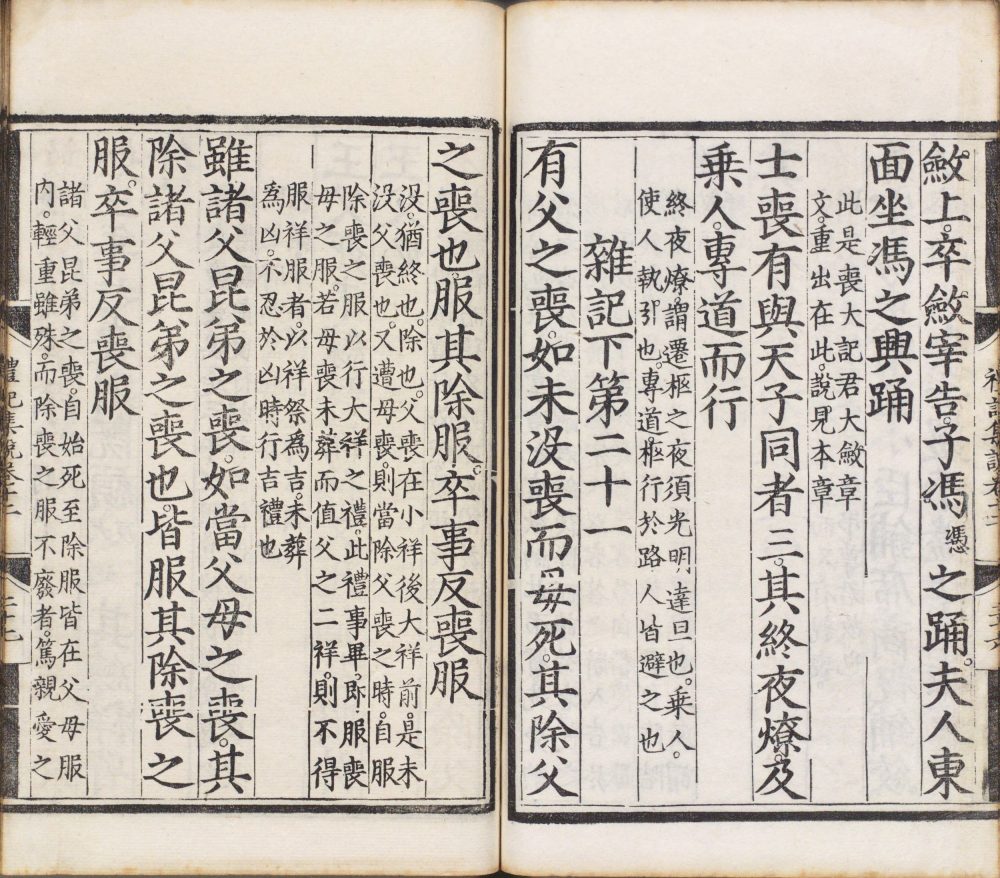 斂上。卒斂宰告。子馮憑之踊。夫人東
面坐馮之興踊
此是喪大記君大斂章
文。重出在此。說見本章
士喪有與天子同者三。其終夜燎。及
乘人。專道而行
終夜燎。謂遷柩之夜須光明達旦也。乘人。
使人執引也。專道柩行於路人皆避之也
雜記下第二十一
有父之喪。如未沒喪而母死。其除父
之喪也。服其除服。卒事反喪服
沒。猶終也。除也。父喪在小祥後大祥前。是未
沒父喪也。又遭母喪。則當除父喪之時。自服
除喪之服以行大祥之禮。此禮事畢。即服喪
母之服。若母喪未葬而值父之二祥。則不得
服祥服者。以祥祭為吉。未葬
為凶。不忍於凶時行吉禮也
雖諸父昆弟之喪。如當父母之喪。其
除諸父昆弟之喪也。皆服其除喪之
服。卒事反喪服
諸父昆弟之喪。自始死至除服皆在父母服
內。輕重雖殊。而除喪之服不廢者。篤親愛之
禮記集說卷十二
二十七